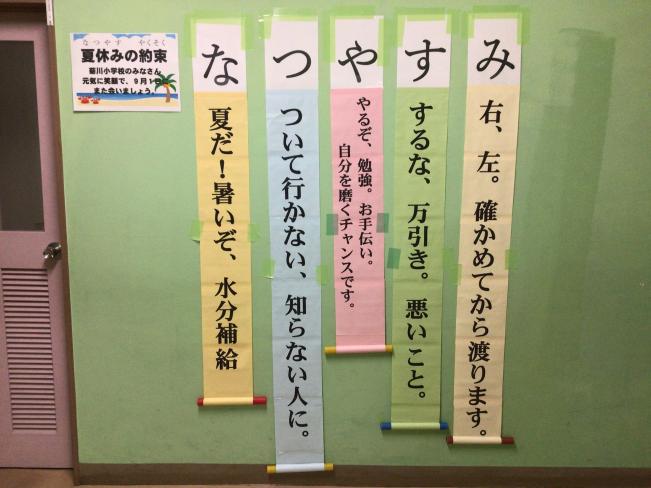 なつやす やくそく
夏休みの約束
菊川小学校のみなさん
元気に笑顔で、9月1日に
また会いましょう。
な
夏だ！暑いぞ、水分補給
つ
ついて行かない、知らない人に。
や
やるぞ、勉強。お手伝い。
自分を磨くチャンスです。
す
するな、万引き。悪いこと。
み
右、左。確かめてから渡ります。